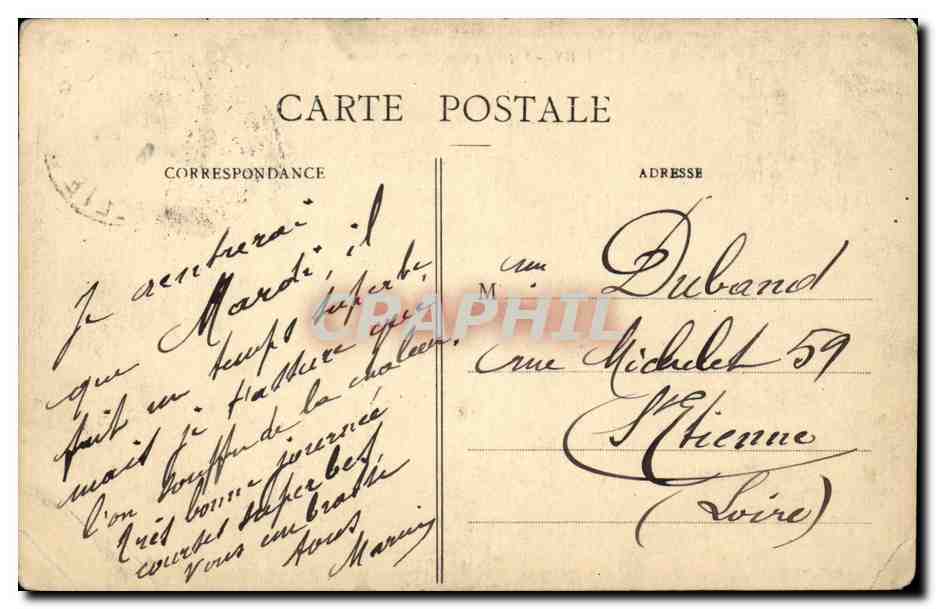 CARTE POSTALE
CORRESPONDANCE
ADRESSE
Je rentrerai
que Mardi, il
fait un temps superbe,
mais je t'assure que
l'on souffre de la chaleur.
très bonne journée
courses superbes
vous embrasse
tous
M
Duband
rue Michelet 59
St Etienne
(Loire)
CARAPHIL